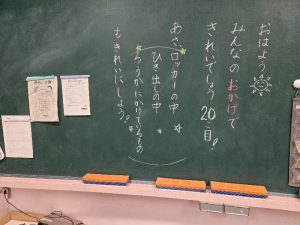 おはよう
みんなのおかげで
きれいでしょう 20日目!
あさ、ロッカーの中
ひき出しの中
ろうかにかけてあるもの
もきれいにしよう。